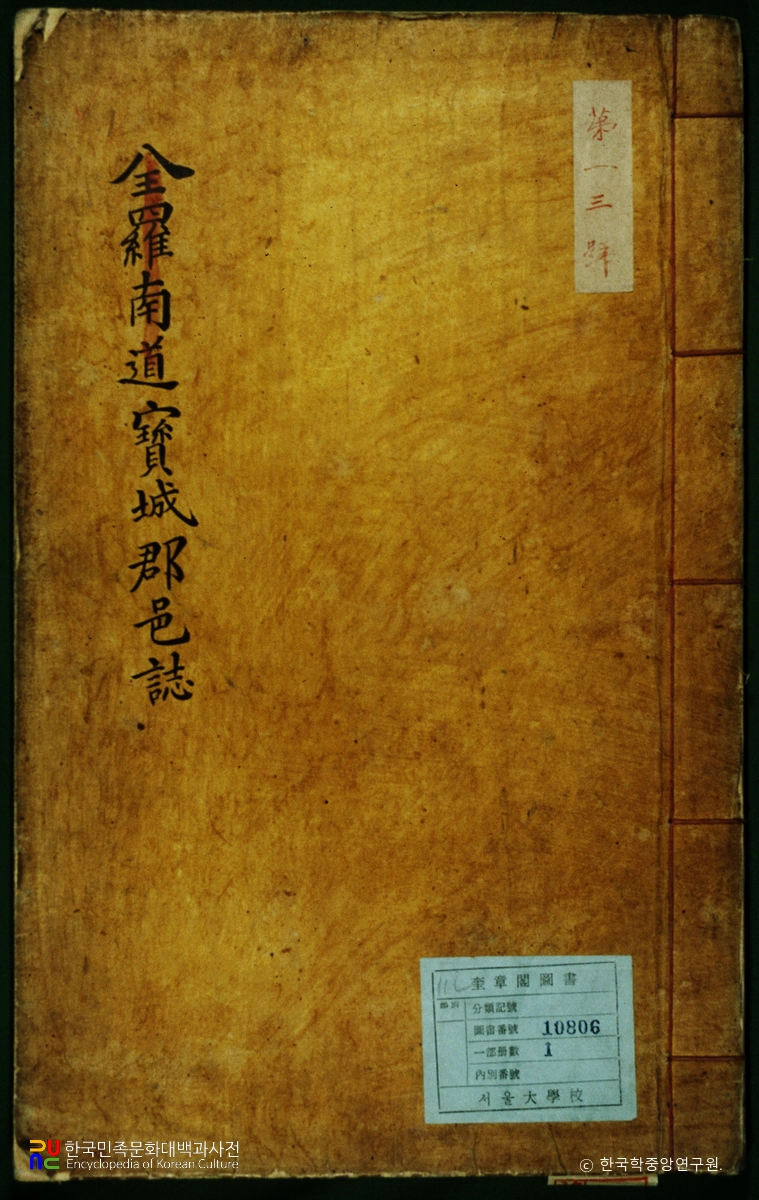 全羅南道寶城郡邑誌
第一三號
奎章閣圖書
分類記號
圖書番號 10806
一部册數 1
內別番號
서울大學校
한국민족문화대백과사전
Encyclopedia of Korean Culture
© 한국학중앙연구원